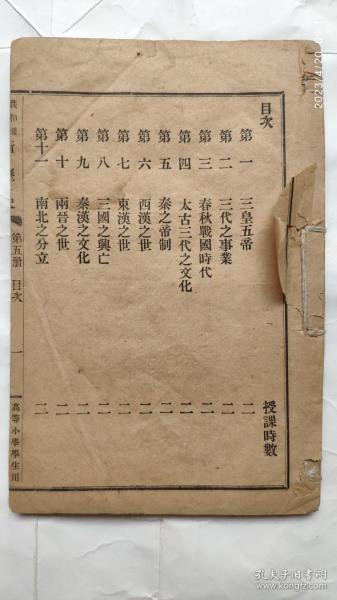 目次 授課時數
第一 三皇五帝 二
第二 三代之事業 二
第三 春秋戰國時代 二
第四 太古三代之文化 二
第五 秦之帝制 二
第六 西漢之世 二
第七 東漢之世 二
第八 三國之興亡 二
第九 秦漢之文化 二
第十 兩晉之世 二
第十一 南北之分立 二
第五册 目次 一 高等小學學生用
2023/4/20
孔夫子旧书网